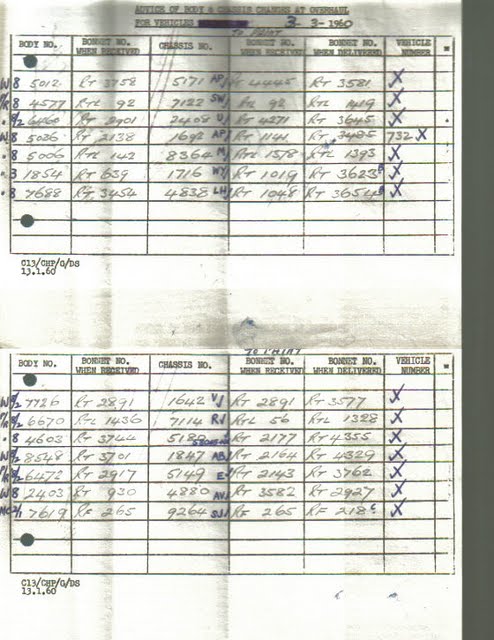 ADVICE OF BODY & CHASSIS CHANGES AT OVERHAUL
FOR VEHICLES 3-3-1960
TO PAINT
BODY NO. BONNET NO. WHEN RECEIVED CHASSIS NO. BONNET NO. WHEN RECEIVED BONNET NO. WHEN DELIVERED VEHICLE NUMBER
W 8 5012 RT 3758 5171 AP/ RT 4445 RT 3581 X
8 4577 RTL 92 7122 SW/ RTL 92 RTL 1419 X
8/2 6460 RT 2901 2408 U/ RT 4271 RT 3645 X
W 8 5036 RT 2138 1692 AP/ RT 1141 RT 3485 732 X
8 5006 RTL 142 8364 M/ RTL 1578 RTL 1393 X
3 1854 RT 639 1716 WY/ RT 1019 RT 3623 X
8 7688 RT 3454 4838 LH/ RT 1048 RT 3654 X
C13/CHP/G/DS
13.1.60
TO PAINT
BODY NO. BONNET NO. WHEN RECEIVED CHASSIS NO. BONNET NO. WHEN RECEIVED BONNET NO. WHEN DELIVERED VEHICLE NUMBER
W 8/2 7726 RT 2891 1642 V/ RT 2891 RT 3577 X
8/2 6670 RTL 1436 7114 RV/ RTL 56 RTL 1328 X
8 4603 RT 3744 RT 2177 RT 4355 X
W 8/2 8548 RT 3701 1847 AB/ RT 2164 RT 4329 X
8/2 6472 RT 2917 5149 E/ RT 2143 RT 3762 X
W 8 2403 RT 930 4880 AV/ RT 3582 RT 2927 X
NC 2/1 7619 RF 265 9264 SJ/ RF 265 RF 218 C X
C13/CHP/G/DS
13.1.60